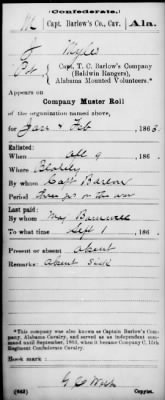 (Confederate.)
M Capt. Barlow's Co., Cav. Ala.
J Myles
Pvt, Capt. T. C. Barlow's Company
(Baldwin Rangers),
Alabama Mounted Volunteers.*
Appears on
Company Muster Roll
of the organization named above,
for Jan & Feb, 1863.
Enlisted:
When 9, 186 .
Where Blakely
By whom Capt Barlow
Period three yrs or the war
Last paid:
By whom Maj
To what time Sept 1, 186 .
Present or absent absent
Remarks: absent sick
*This company was also known as Captain Barlow's Company, Alabama Cavalry, and served as an independent command until September, 1863, when it became Company C, 15th Regiment Confederate Cavalry.
Book mark:
(642) Copyist.